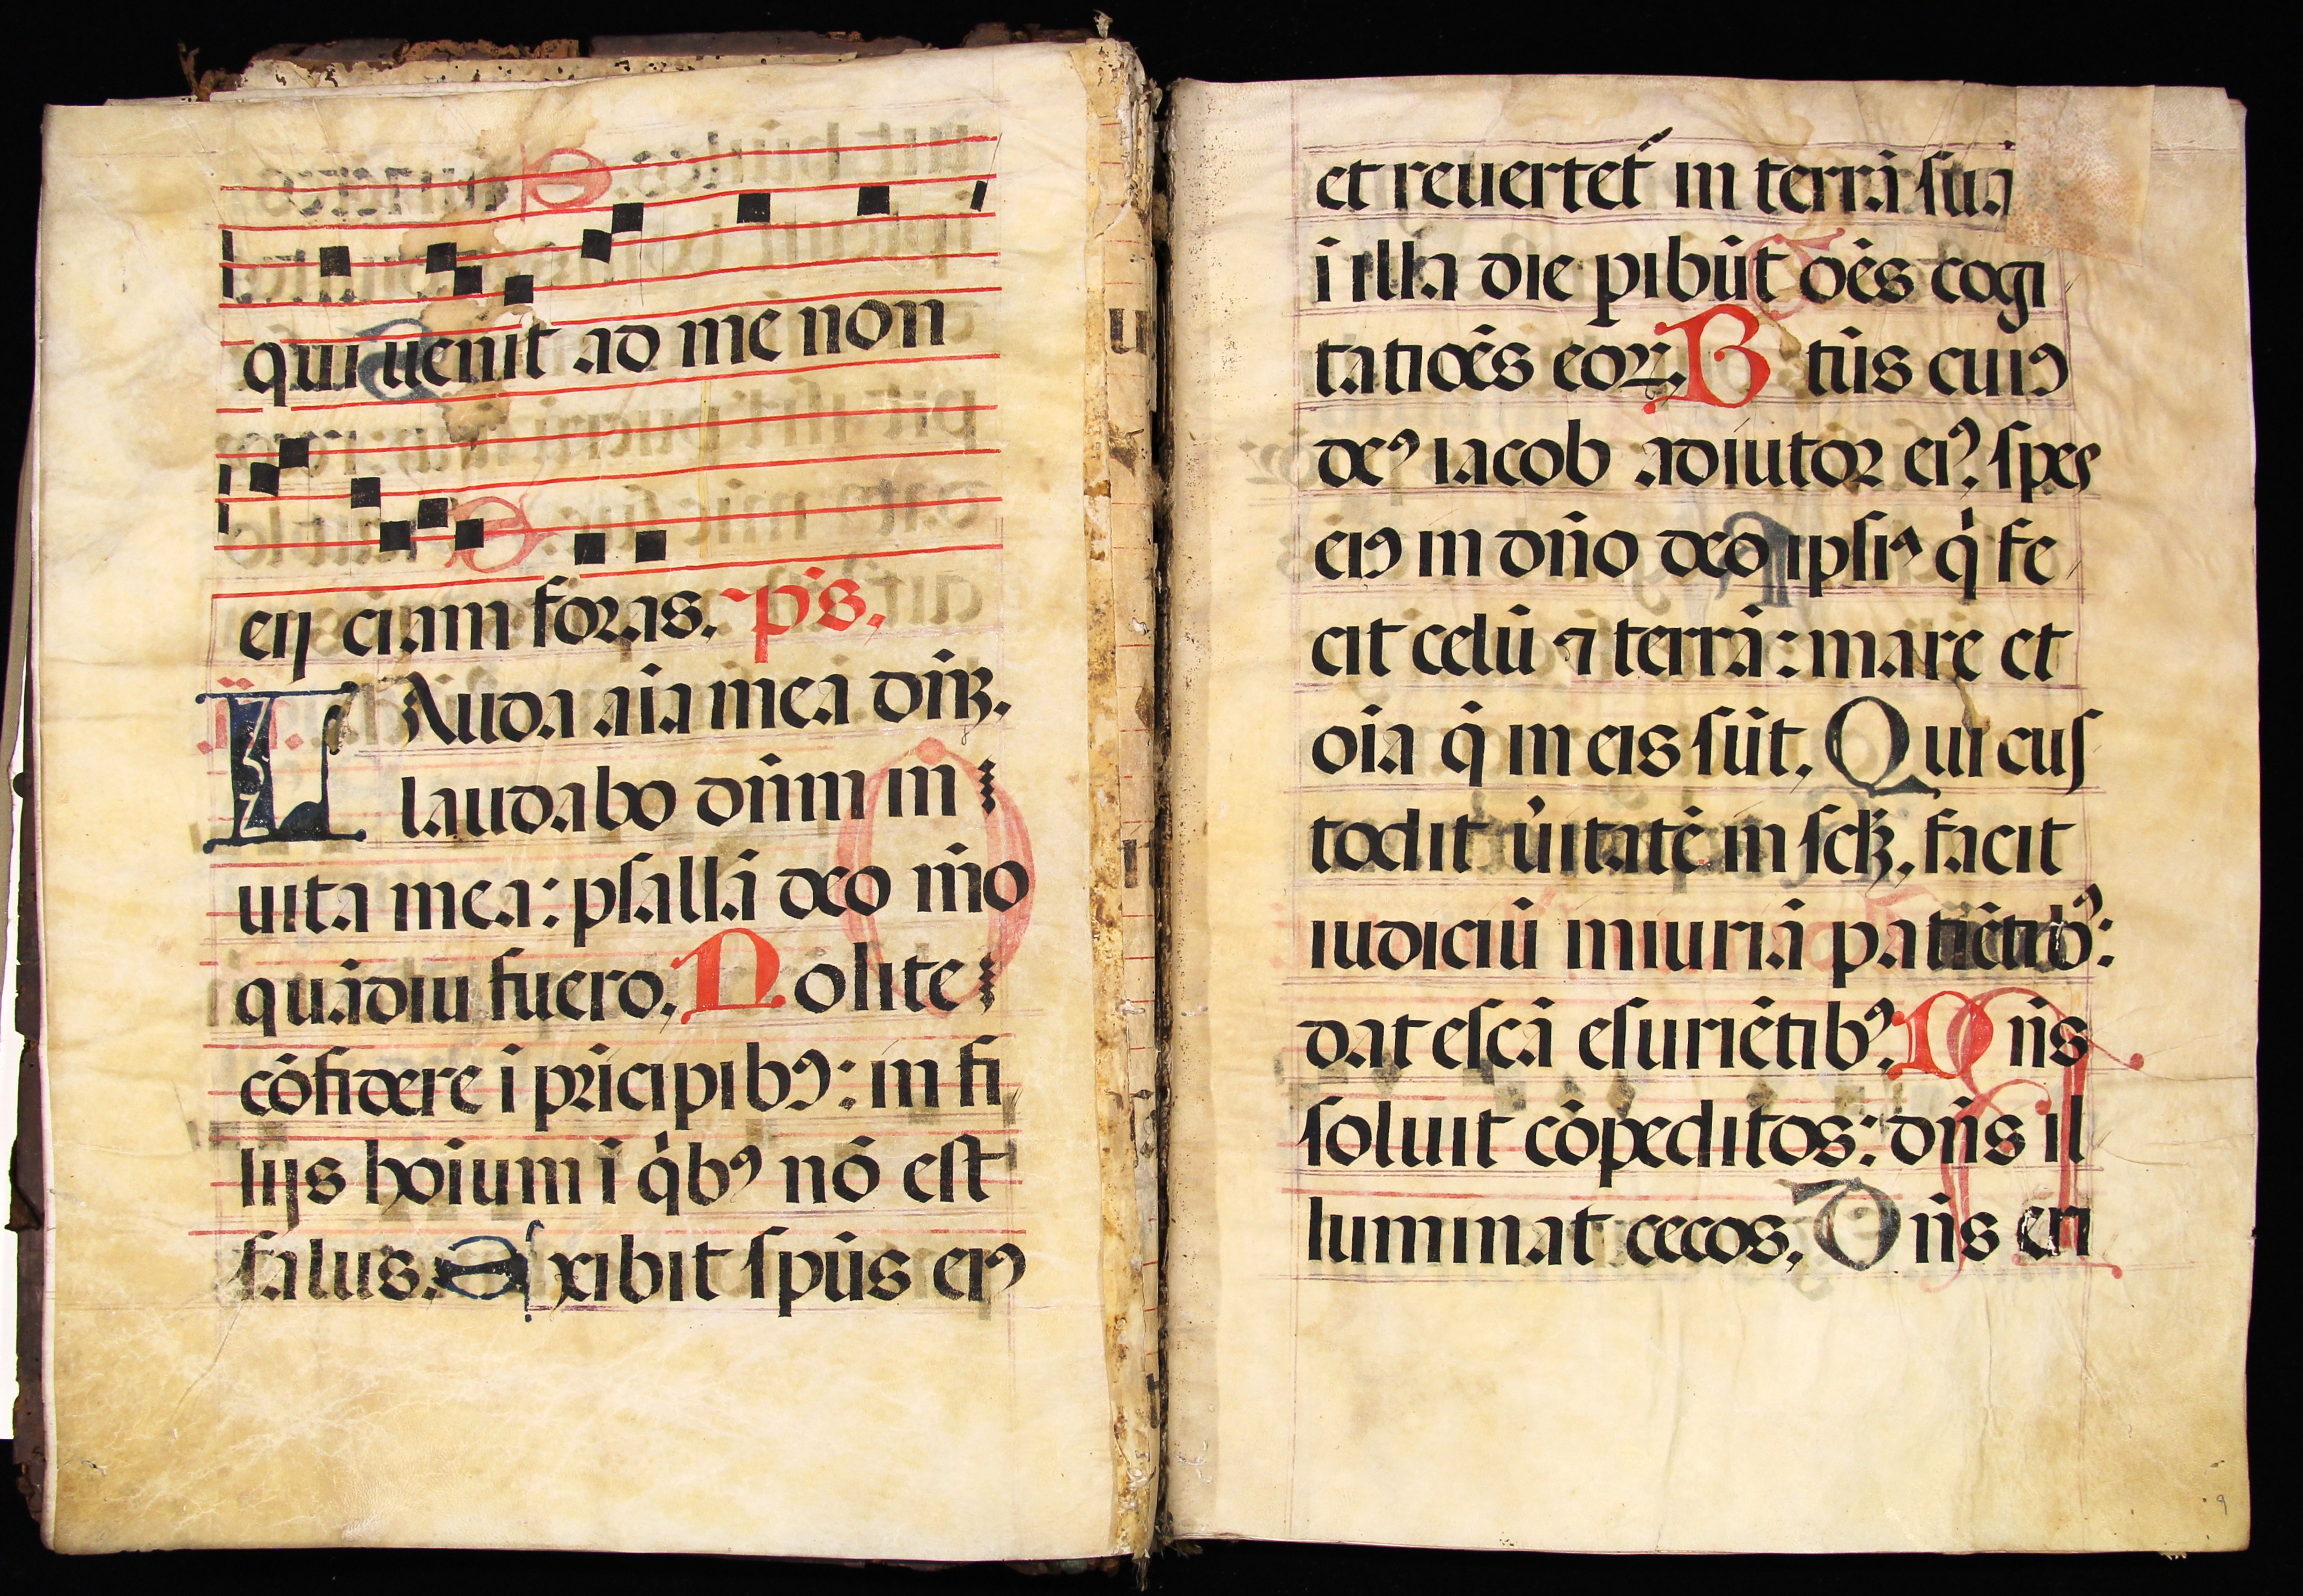 qui uenit ad me non
eij ciam foras. p̄s.
LAuda aīa mea dn̄ꝫ.
laudabo dn̄m in
uita mea: psallā deo m̄o
quādiu fuero. Nolite
cōfidere ī prīcipibꝰ: in fi
lijs hoīum ī qͥbꝰ nō est
salus. Exibit spūs eiꝰ
et reuertet᷑ in terrā suā
ī illa die pibūt oēs cogi
tatiōēs eoꝝ. B tūs cuiꝰ
deꝰ iacob adiutor eiꝰ. spes
eiꝰ in dn̄o deo ipsiꝰ qͥ fe
cit celū ⁊ terrā: mare et
oīa q̄ in eis sūt. Qui cus
todit u̓itatē in sclꝫ. facit
iudiciū iniuriā patiētibꝰ:
dat escā esuriētibꝰ. Dn̄s
soluit cōpeditos: dn̄s il
luminat cecos. Dn̄s eri